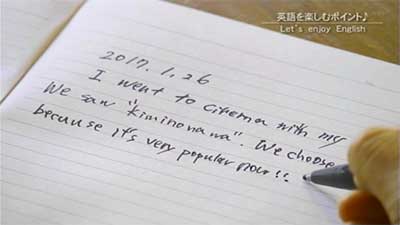 英語を楽しむポイント♪
Let's enjoy English
2017.1.26
I went to cinema with my
We saw "kiminonawa". We choose
because it's very popular now!!